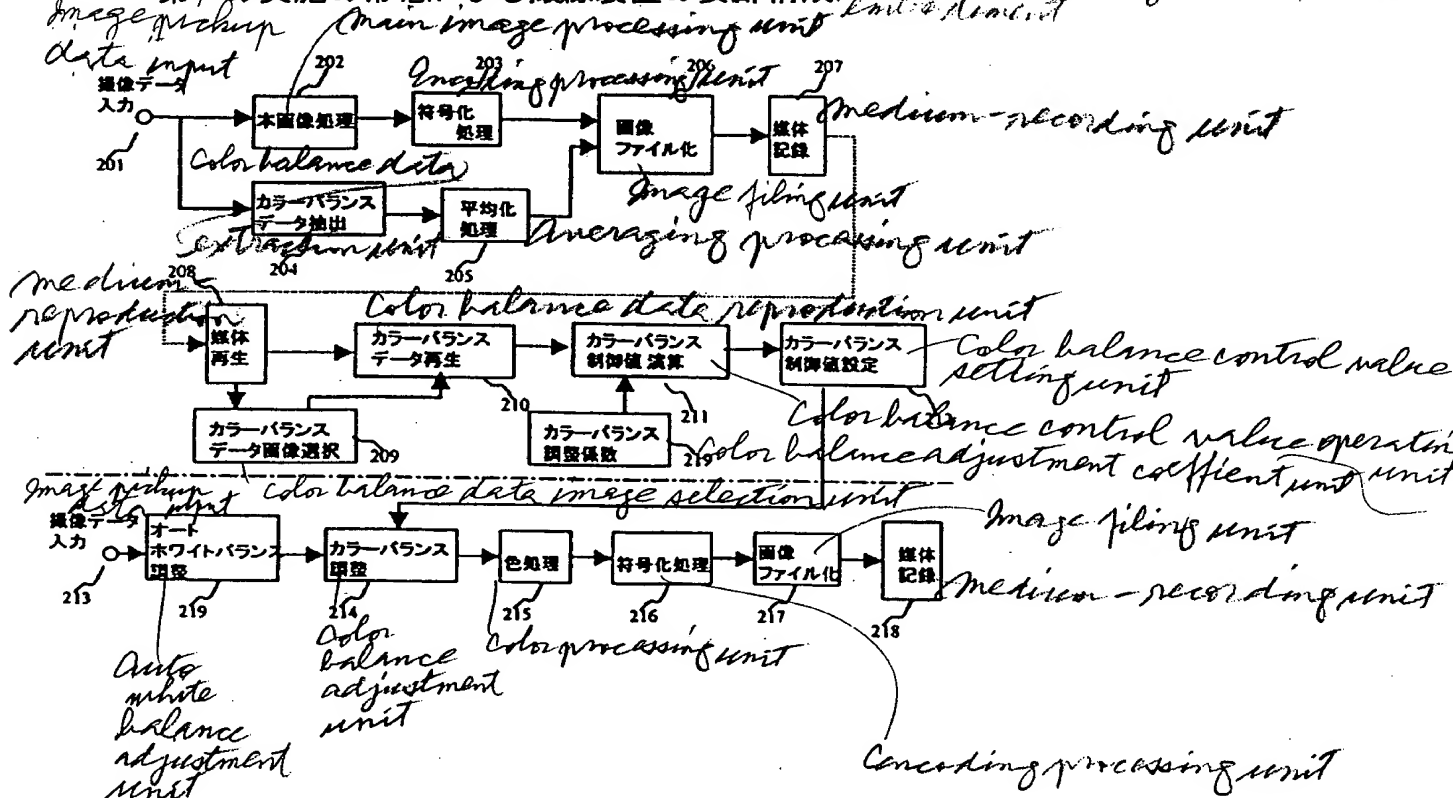 Image pickup
data input
main image processing unit
embodiment
撮像データ
入力
201
202
本画像処理
Encoding processing unit
203
符号化
処理
206
画像
ファイル化
Image filing unit
207
媒体
記録
medium-recording unit
Color balance data
extraction unit
カラーバランス
データ抽出
204
平均化
処理
205
Averaging processing unit
medium
reproduction
unit
208
媒体
再生
Color balance data reproduction unit
カラーバランス
データ再生
210
カラーバランス
制御値 演算
211
カラーバランス
制御値設定
Color balance control value
setting unit
カラーバランス
データ画像選択
209
カラーバランス
調整係数
Color balance control value operating
unit
Color balance adjustment coeffient unit
Color balance data image selection unit
Image pickup
data input
撮像データ
入力
213
オート
ホワイトバランス
調整
219
カラーバランス
調整
214
色処理
215
符号化処理
216
画像
ファイル化
217
Image filing unit
媒体
記録
218
medium-recording unit
Auto
white
balance
adjustment
unit
Color
balance
adjustment
unit
Color processing unit
Cencoding processing unit